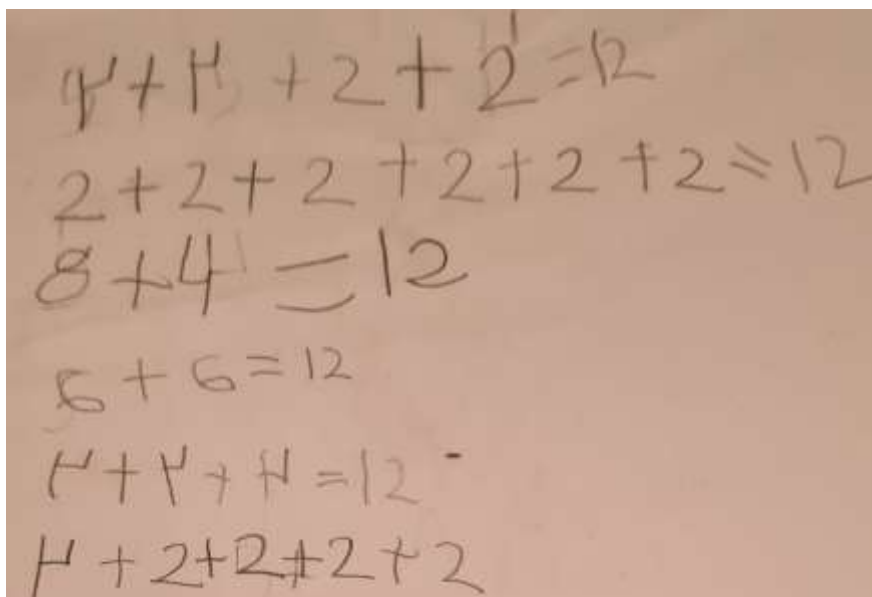 4+4+2+2=12
2+2+2+2+2+2=12
8+4=12
6+6=12
4+4+4=12
4+2+2+2+2